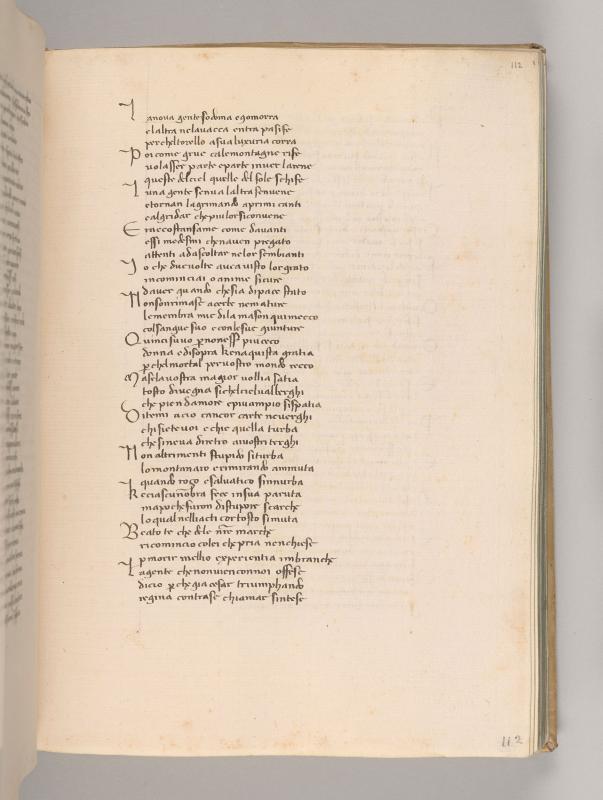 112
La nova gente sodoma e gomorra
e laltra nelavacca entra pasife
perche l torello a sua luxuria corra
Poi come grue cale montagne rife
volasser parte e parte inver larene
queste del ciel quelle del sole schife
Luna gente sen va laltra sen vene
e tornan lagrimando a primi canti
e al gridar che piu lor si convene
E racostansame come davanti
essi medesmi che naven pregato
attenti ad ascoltar ne lor sembianti
Io che due volte avea visto lor grato
incominciai o anime sicure
daver quando che sia di pace stato
Non son rimase acerbe ne mature
le membra mie di la ma son qui meco
col sangue suo e con le sue giunture
Quinci su vo p non esser piu ceco
donna e di sopra ke naquista gratia
p chel mortal per vostro mondo reco
Ma se la vostra magior vollia satia
tosto divegna si chel ciel valberghi
che pien damore e piu ampio si spatia
Ditemi acio cancor carte ne verghi
chi siete voi e chi e quella turba
che sine va diretro a vostri terghi
Non altrimenti stupido si turba
lo montanaro e rimirando ammuta
quando rozo e salvatico sinnurba
Ke ciascunombra fece in sua paruta
ma poi che furon di stupore scarche
lo qual nelli acti cor tosto si muta
Beato te che de le nre marche
ricomincio colei che pria nenchiese
p morir mellio experientia imbranche
La gente che non vien con noi offese
di cio p che gia cesar triumphando
regina contra se chiamar sintese
112